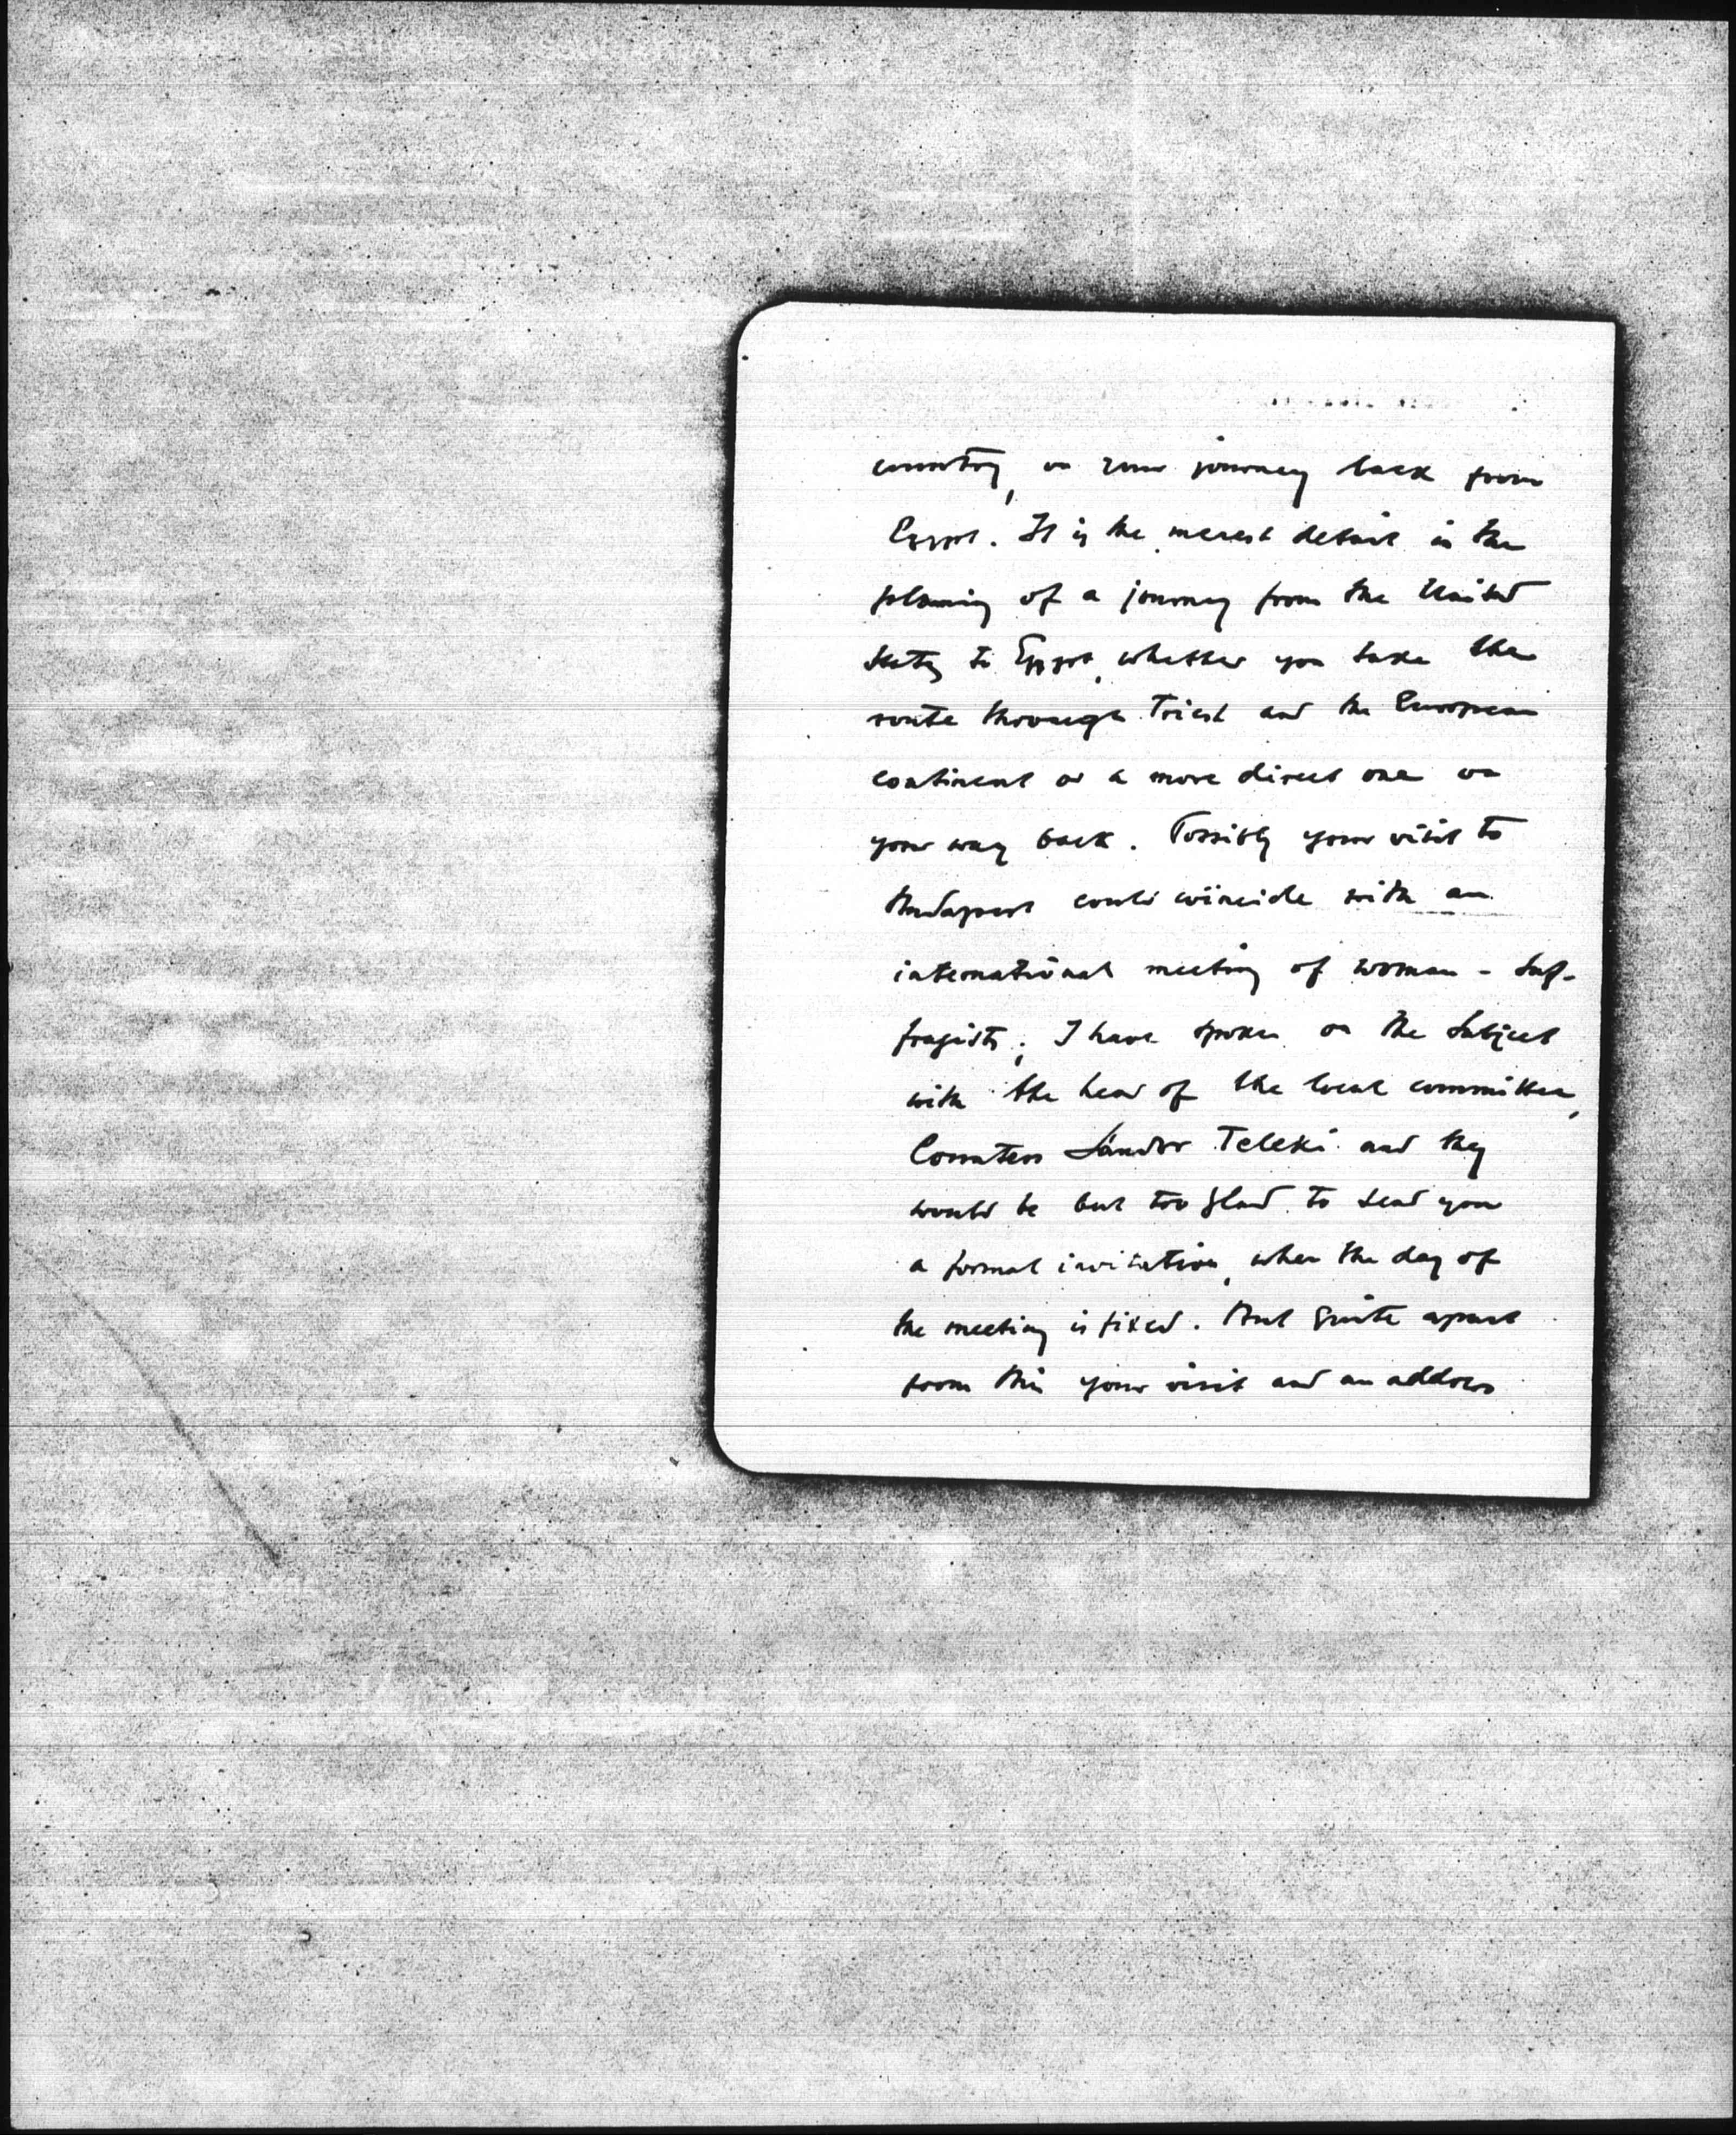 country, on your journey back from
Egypt. It is the merest detail in the
planning of a journey from the United
States to Egypt, whether you take the
route through Triest and the European
continent or a more direct one on
your way back. Possibly your visit to
Budapest could coincide with an
international meeting of woman - suf-
fragists; I have spoken on the subject
with the head of the local committee,
Countess Sándor Teleki and they
would be but too glad to send you
a formal invitation, when the day of
the meeting is fixed. But quite apart
from this your visit and an address